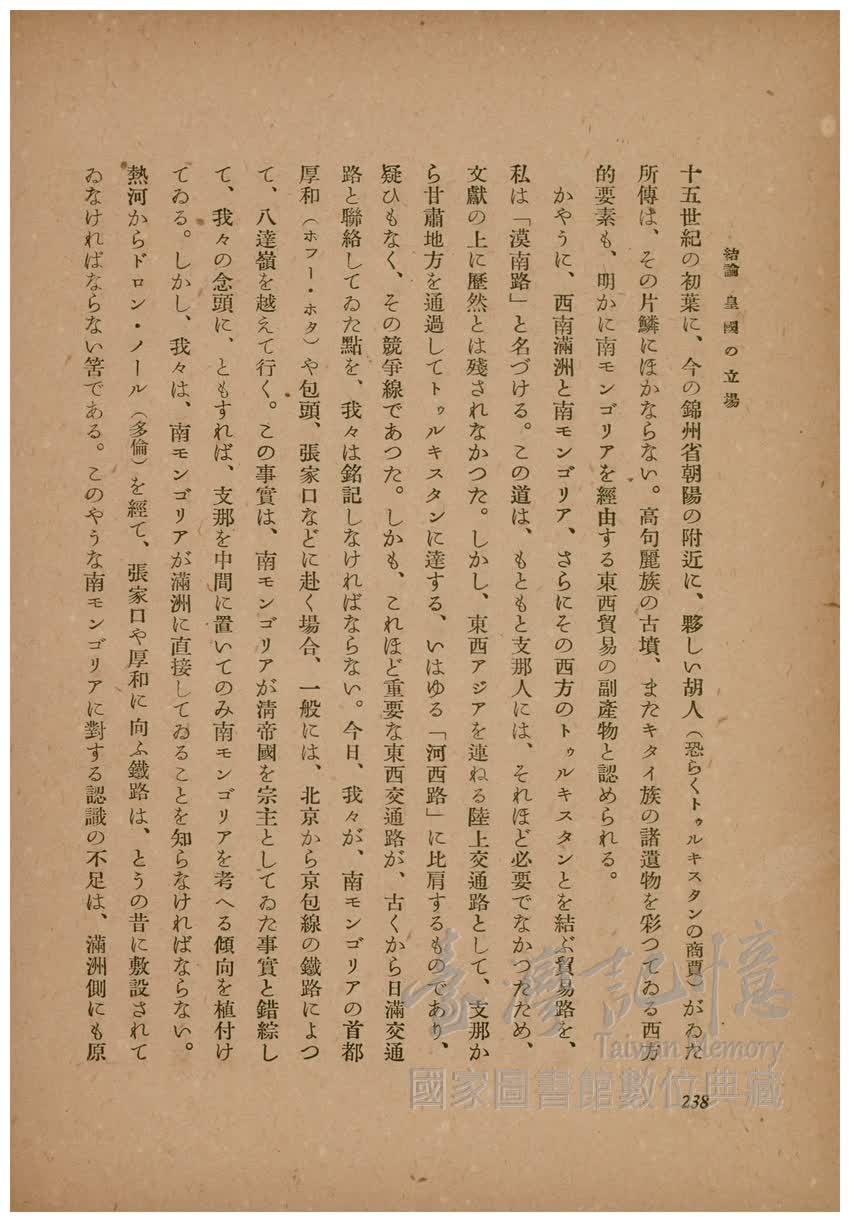 結論 皇國の立場
十五世紀の初葉に、今の錦州省朝陽の附近に、夥しい胡人（恐らくトゥルキスタンの商賈）がゐた
所傳は、その片鱗にほかならない。高句麗族の古墳、またキタイ族の諸遺物を彩つてゐる西方
的要素も、明かに南モンゴリアを經由する東西貿易の副產物と認められる。
かやうに、西南滿洲と南モンゴリア、さらにその西方のトゥルキスタンとを結ぶ貿易路を、
私は「漠南路」と名づける。この道は、もともと支那人には、それほど必要でなかつたため、
文獻の上に歷然とは殘されなかつた。しかし、東西アジアを連ねる陸上交通路として、支那か
ら甘肅地方を通過してトゥルキスタンに達する、いはゆる「河西路」に比肩するものであり、
疑ひもなく、その競爭線であつた。しかも、これほど重要な東西交通路が、古くから日滿交通
路と聯絡してゐた點を、我々は銘記しなければならない。今日、我々が、南モンゴリアの首都
厚和（ホフー・ホタ）や包頭、張家口などに赴く場合、一般には、北京から京包線の鐵路によつ
て、八達嶺を越えて行く。この事實は、南モンゴリアが淸帝國を宗主としてゐた事實と錯綜し
て、我々の念頭に、ともすれば、支那を中間に置いてのみ南モンゴリアを考へる傾向を植付け
てゐる。しかし、我々は、南モンゴリアが滿洲に直接してゐることを知らなければならない。
熱河からドロン・ノール（多倫）を經て、張家口や厚和に向ふ鐵路は、とうの昔に敷設されて
ゐなければならない筈である。このやうな南モンゴリアに對する認識の不足は、滿洲側にも原
238
臺灣記憶
Taiwan Memory
國家圖書館數位典藏